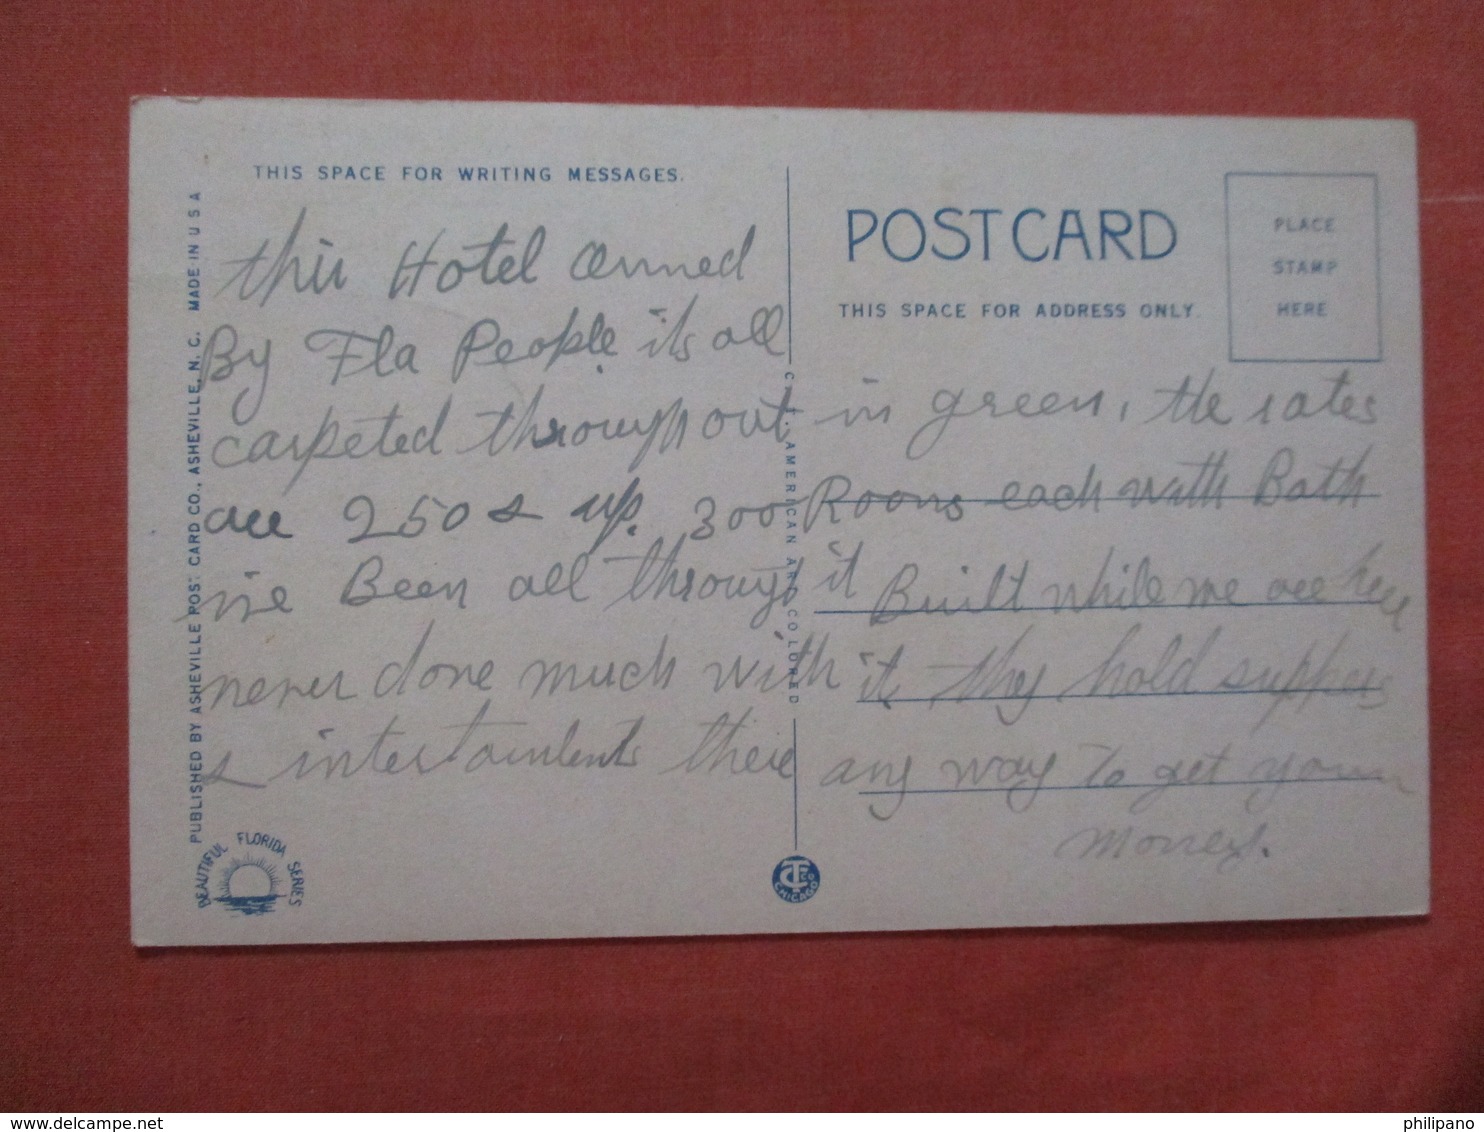 THIS SPACE FOR WRITING MESSAGES.
POST CARD
PLACE
STAMP
HERE
THIS SPACE FOR ADDRESS ONLY.
this Hotel Owned
By Fla People its all
carpeted throughout in green, the rates
are 250 & up. 300 Rooms each with Bath
ive Been all through it Built while we are here
never done much with it, they hold suppers
& intertainlents there any way to get your
Money.
PUBLISHED BY ASHEVILLE POST CARD CO., ASHEVILLE, N. C. MADE IN U S A
C. T. AMERICAN ART COLORED
BEAUTIFUL FLORIDA SERIES
CT CO
CHICAGO
www.delcampe.net
philipano